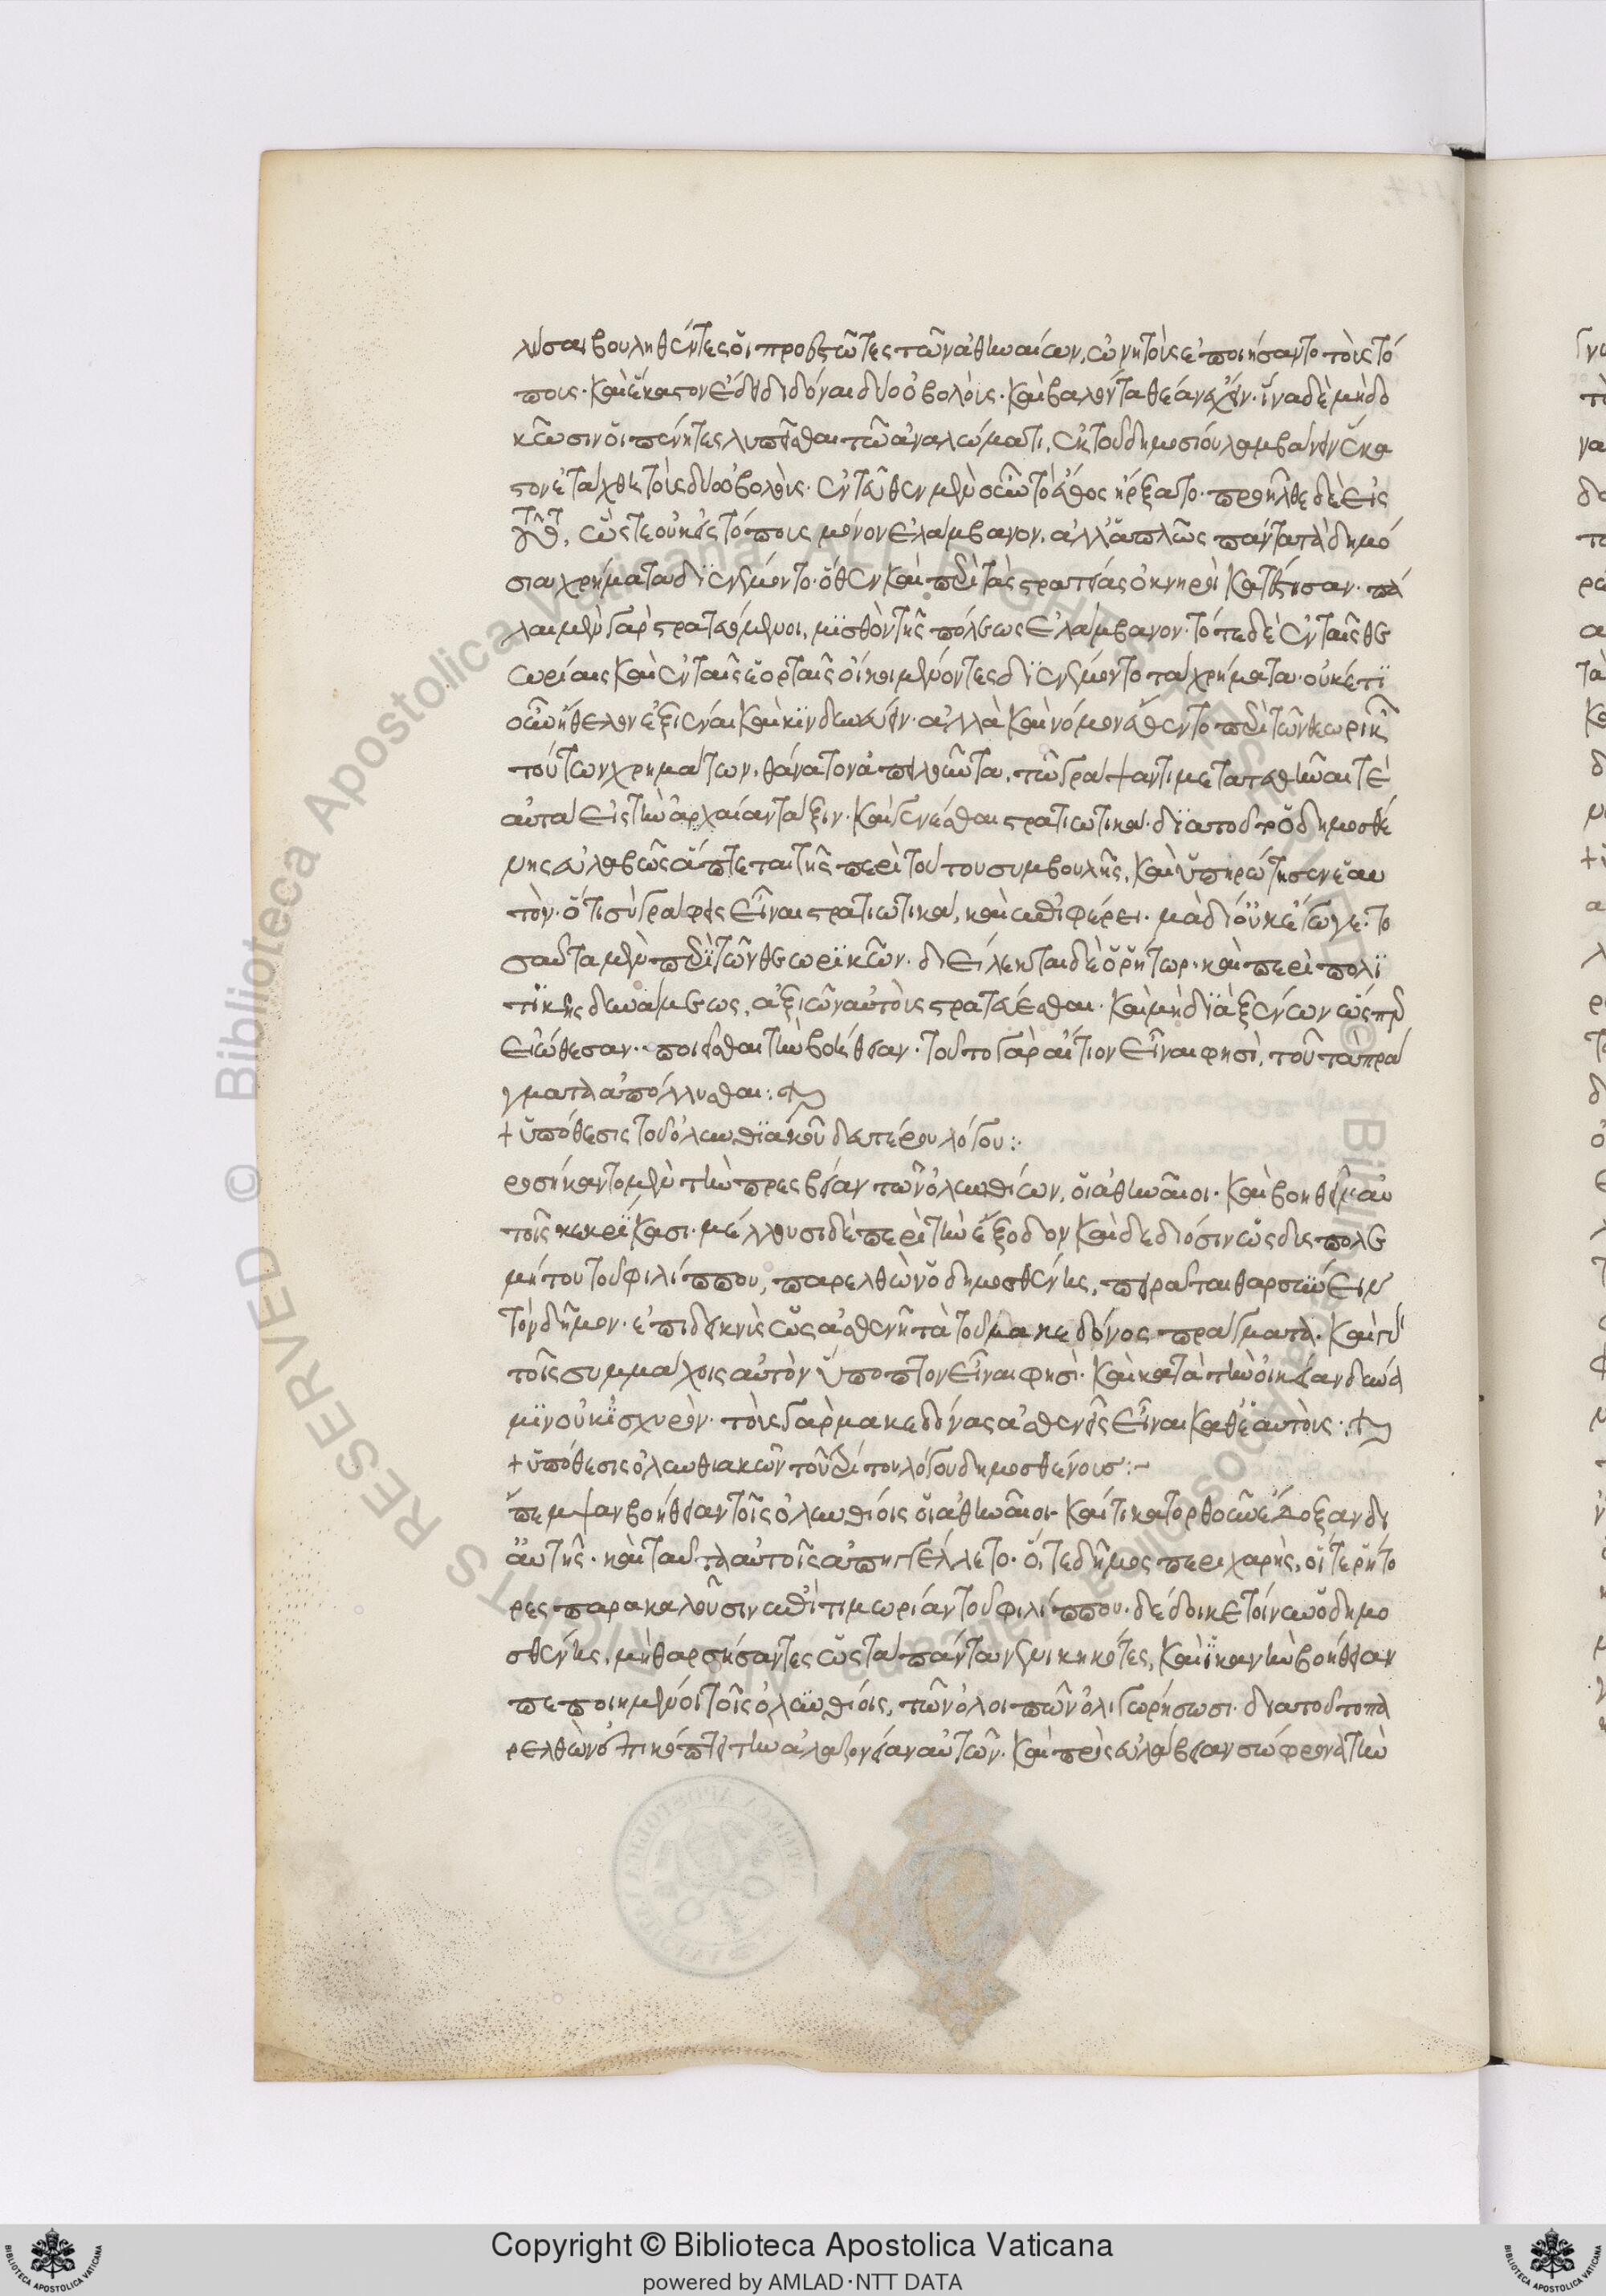 λῦσαι βουληθέντες οἱ προεστῶτες τῶν ἀθηναίων, ὠνητοὺς ἐποιήσαντο τοὺς τό
πους· καὶ ἕκαστον ἔδει διδόναι δύο ὀβολοὺς· καὶ βαλόντα θέαν ἔχειν· ἵνα δὲ μὴ δο
κῶσιν οἱ πένητες λυπεῖσθαι τῷ ἀναλώματι, ἐκ τοῦ δημοσίου λαμβάνειν ἕκα
στον ἐτάχθη τοὺς δύο ὀβολοὺς· ἐντεῦθεν μὲν οὖν τὸ ἔθος ἤρξατο· προῆλθε δὲ εἰς
τοῦτο, ὥστε οὐκ εἰς τόπους μόνον ἐλάμβανον, ἀλλ' ἁπλῶς πάντα τὰ δημό
σια χρήματα διενέμοντο· ὅθεν καὶ περὶ τὰς στρατείας ὀκνηροὶ κατέστησαν· πά
λαι μὲν γὰρ στρατευόμενοι, μισθὸν τῆς πόλεως ἐλάμβανον· τότε δὲ ἐν ταῖς θε
ωρίαις καὶ ἐν ταῖς ἑορταῖς οἴκοι μένοντες διενέμοντο τὰ χρήματα· οὐκέτι
οὖν ἤθελον ἐξιέναι καὶ κινδυνεύειν· ἀλλὰ καὶ νόμον ἔθεντο περὶ τῶν θεωρικῶν
τούτων χρημάτων, θάνατον ἀπειλοῦντα, τῷ γράψαντι μετατεθῆναί τε
αὐτὰ εἰς τὴν ἀρχαίαν τάξιν· καὶ γενέσθαι στρατιωτικά· διὰ τοῦτο ὁ δημοσθέ
νης εὐλαβῶς ἅπτεται τῆς περὶ τούτου συμβουλῆς, καὶ ὑπηρώτησεν ἑαυ
τὸν· ὅτι σὺ γράφεις εἶναι στρατιωτικά, καὶ ἐπιφέρει· μὰ δί' οὐκ ἔγωγε· το
σαῦτα μὲν περὶ τῶν θεωρικῶν· διείλεκται δὲ ὁ ῥήτωρ· καὶ περὶ πολι
τικῆς δυνάμεως, ἀξιῶν αὐτοὺς στρατεύεσθαι· καὶ μὴ διὰ ξένων ὥσπερ
εἰώθεσαν· ποιεῖσθαι τὴν βοήθειαν· τοῦτο γὰρ αἴτιον εἶναι φησὶ, τοῦ τὰ πρά
γματα ἀπόλλυσθαι:
+ ὑπόθεσις τοῦ ὀλυνθιακοῦ δευτέρου λόγου:
προσήκαντο μὲν τὴν πρεσβείαν τῶν ὀλυνθίων, οἱ ἀθηναῖοι· καὶ βοηθεῖν αὐ
τοῖς κεκρίκασι· μέλλουσι δὲ περὶ τὴν ἔξοδον καὶ δεδιόσιν ὡς δυσπολε
μήτου τοῦ φιλίππου, παρελθὼν ὁ δημοσθένης, πειρᾶται θαρσύνειν
τὸν δῆμον· ἐπιδεικνὺς ὡς ἀσθενῆ τὰ τοῦ μακεδόνος πράγματα· καὶ γὰρ
τοῖς συμμάχοις αὐτὸν ὕποπτον εἶναι φησὶ· καὶ κατὰ τὴν οἰκείαν δύνα
μιν οὐκ ἰσχυρὸν· τοὺς γὰρ μακεδόνας ἀσθενεῖς εἶναι καθ' ἑαυτοὺς·
+ ὑπόθεσις ὀλυνθιακῶν τοῦ τρίτου λόγου δημοσθένους:~
ἔπεμψαν βοήθειαν τοῖς ὀλυνθίοις οἱ ἀθηναῖοι· καί τι κατορθοῦν ἔδοξαν δι'
αὐτῆς· καὶ ταῦτα αὐτοῖς ἀπηγγέλλετο· ὅ, τε δῆμος περιχαρὴς, οἵ τε ῥήτο
ρες παρακαλοῦσιν ἐπὶ τιμωρίαν τοῦ φιλίππου· δέδοικε τοίνυν ὁ δημο
σθένης, μὴ θαρσήσαντες ὡς τὰ πάντα νενικηκότες, καὶ ἱκανὴν βοήθειαν
πεποιημένοι τοῖς ὀλυνθίοις, τῶν ὅλοιπων ὀλιγωρήσωσι· διὰ τοῦτο πα
ρελθὼν ἐπικόπτει τὴν ἀλαζονείαν αὐτῶν· καὶ πρὸς εὐλάβειαν σώφρονα τὴν